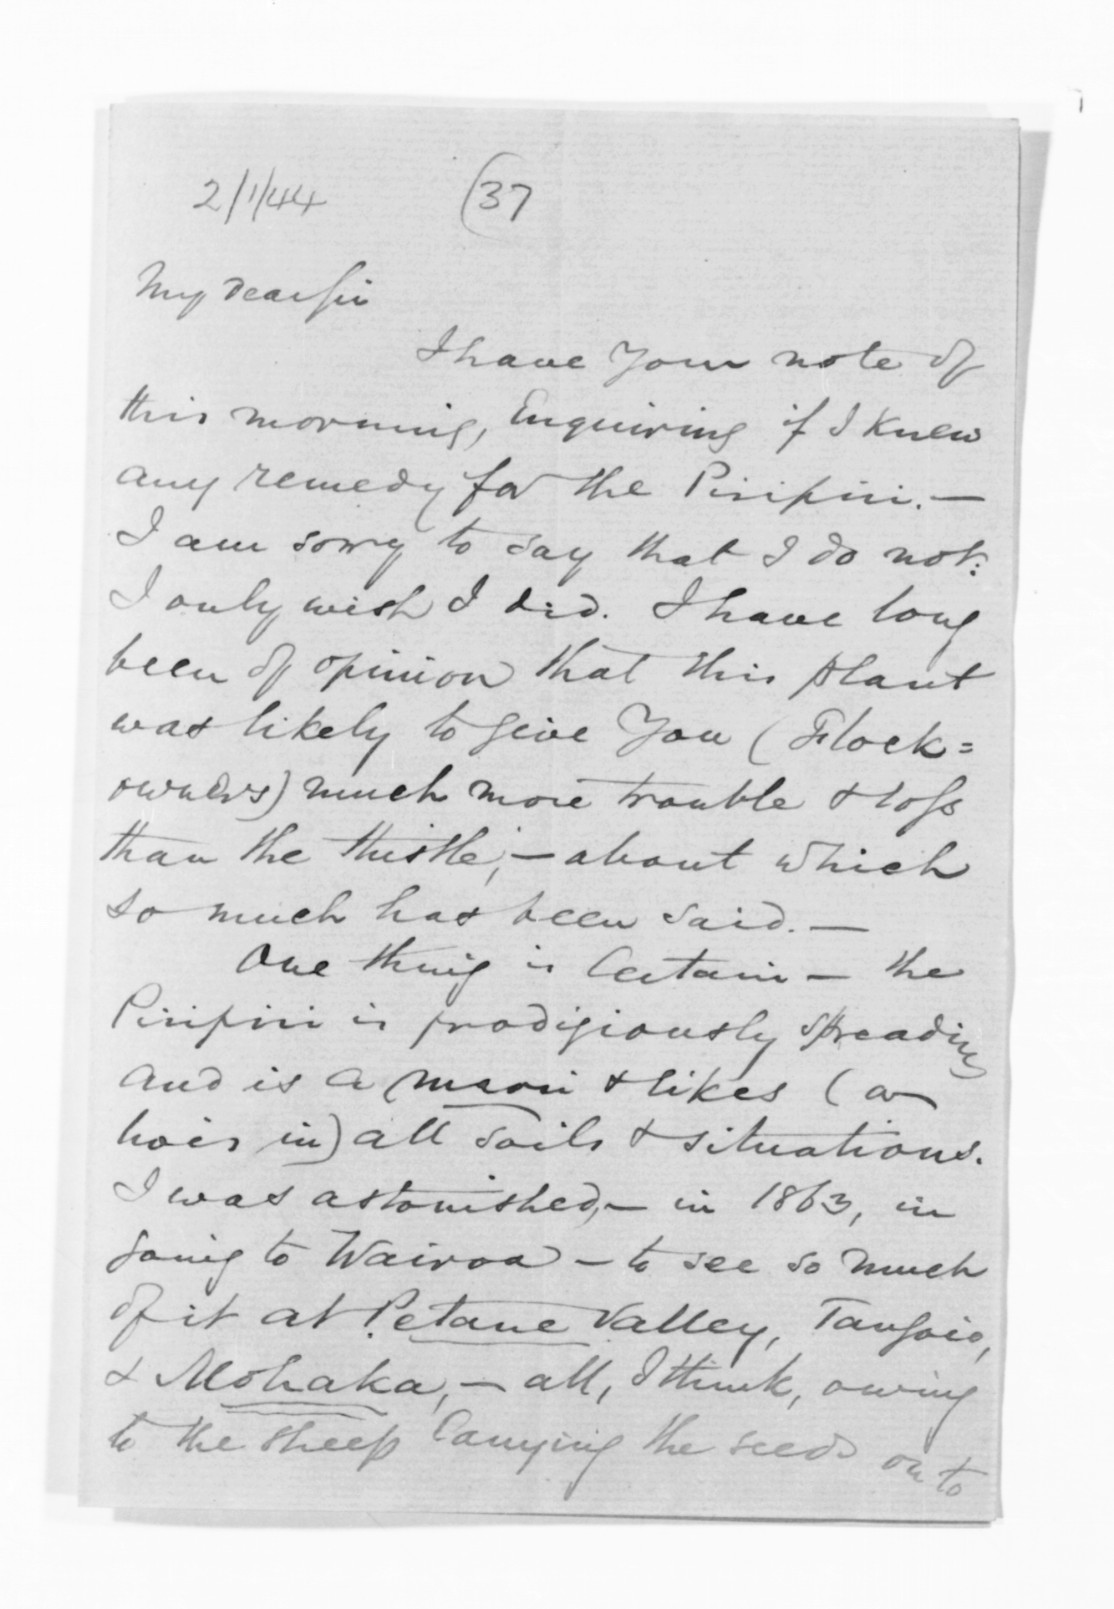 2/1/44 (37
My dear Sir
I have your note of
this morning, Enquiring if I knew
any remedy for the Piripiri. —
I am sorry to say that I do not:
I only wish I did. I have long
been of opinion that this plant
was likely to give you (Flock=
owners) much more trouble & loss
than the thistle; — about which
so much has been said. —
One thing is certain — the
Piripiri is prodigiously spreading
and is a maori & likes (or
hoes in) all soils & situations.
I was astonished, — in 1863, in
going to Wairoa — to see so much
of it at Petane Valley, Tangoio,
& Mohaka, — all, I think, owing
to the sheep carrying the seeds on to